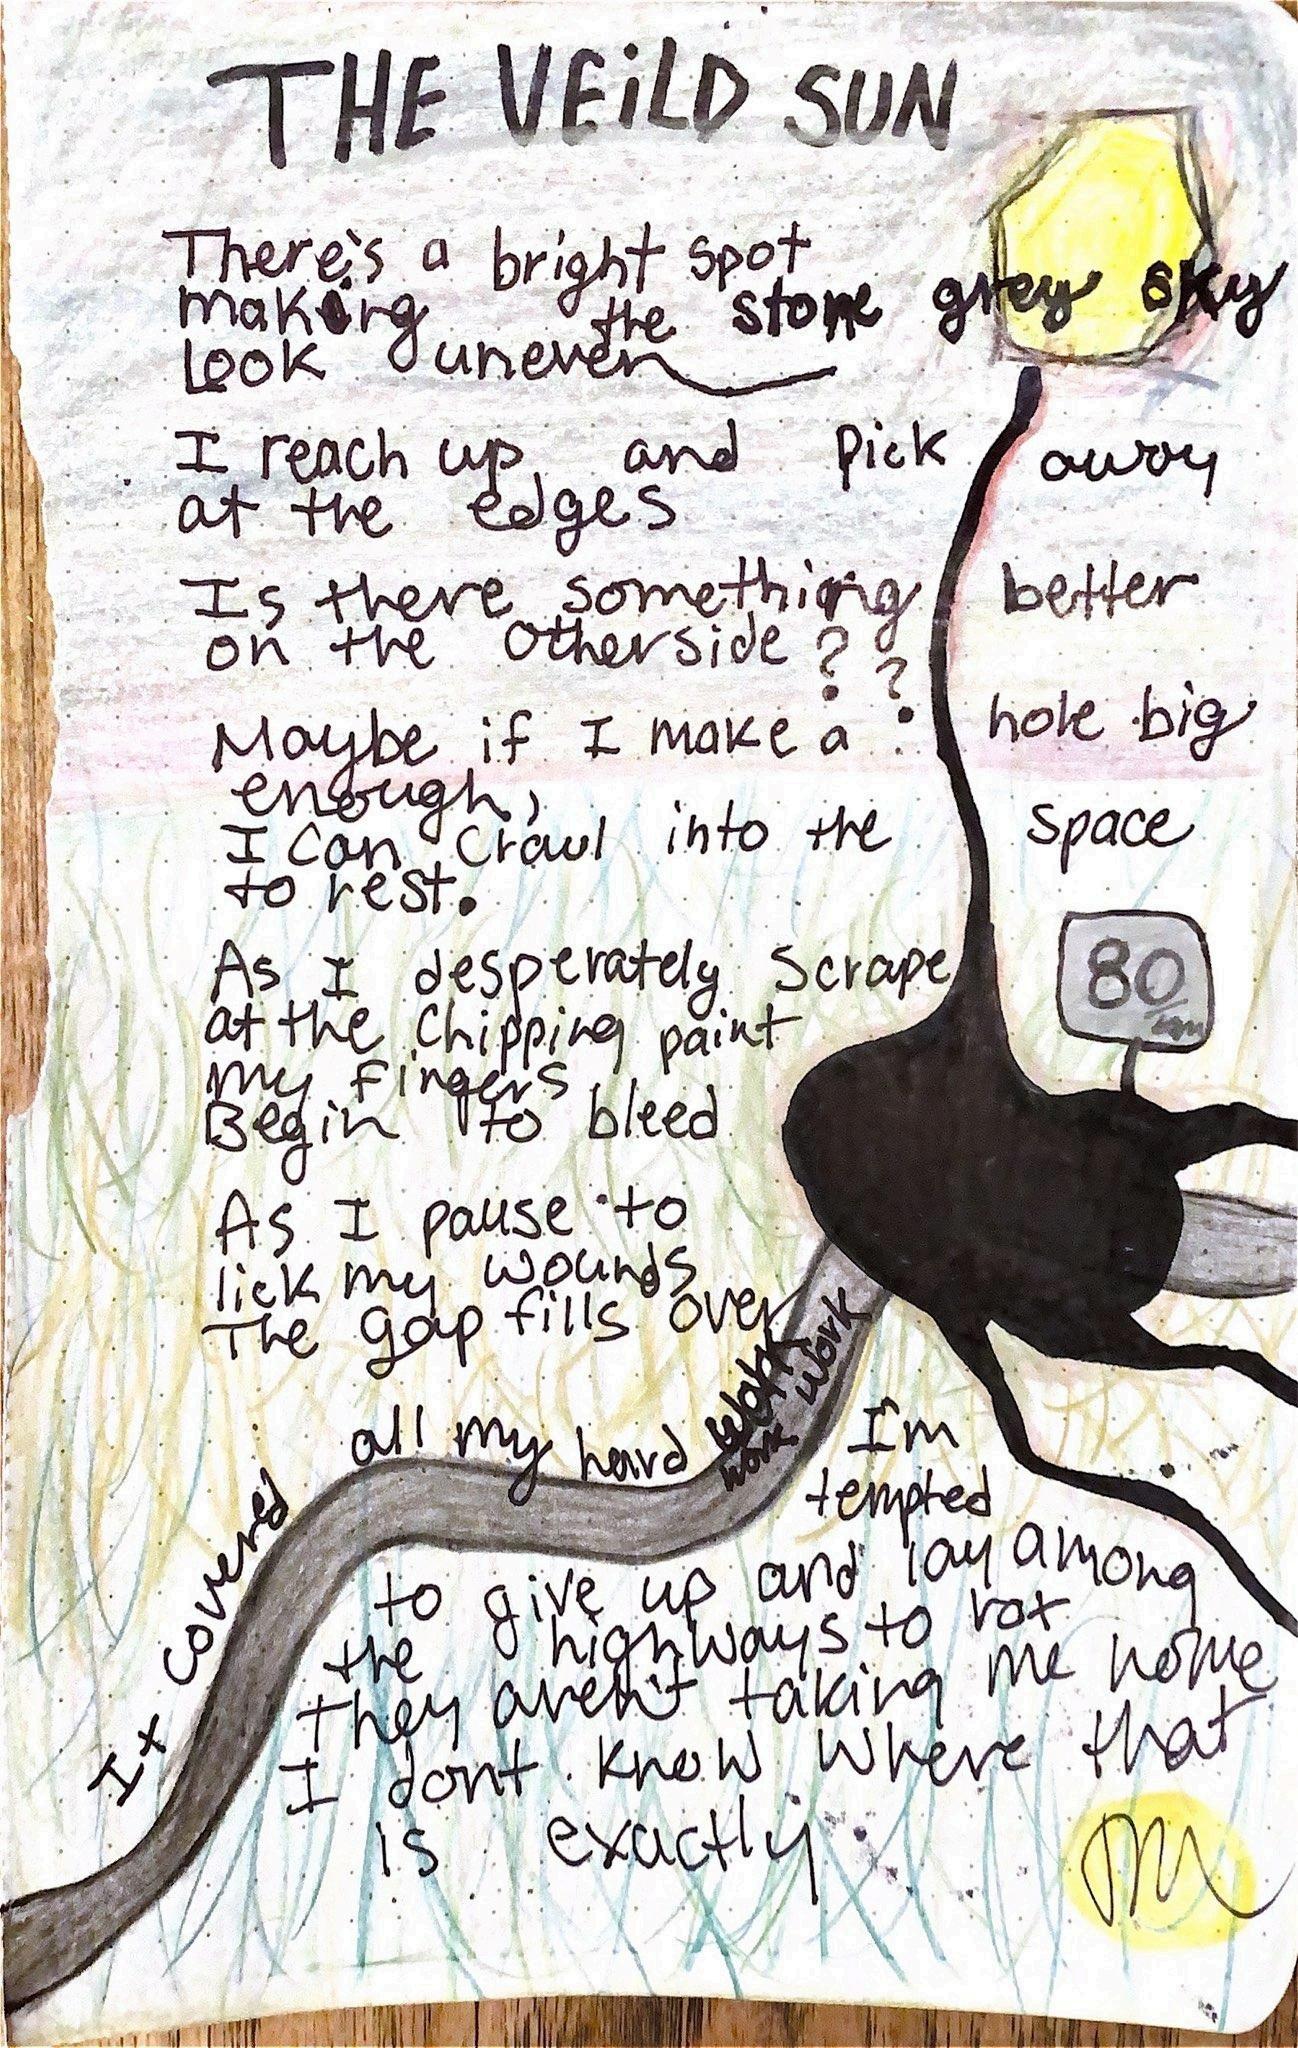 THE VEiLD SUN
There's a bright spot
making the stone grey sky
Look uneven
I reach up and pick away
at the edges
Is there something better
on the otherside??
Maybe if I make a hole big
enough,
I can crawl into the space
to rest.
As I desperately scrape
at the chipping paint
my fingers
Begin to bleed
80
As I pause to
lick my wounds
The gap fills over
It covered all my hard work
work work
I'm
tempted
to give up and lay among
the highways to rot
they aren't taking me home
I dont know where that
is exactly